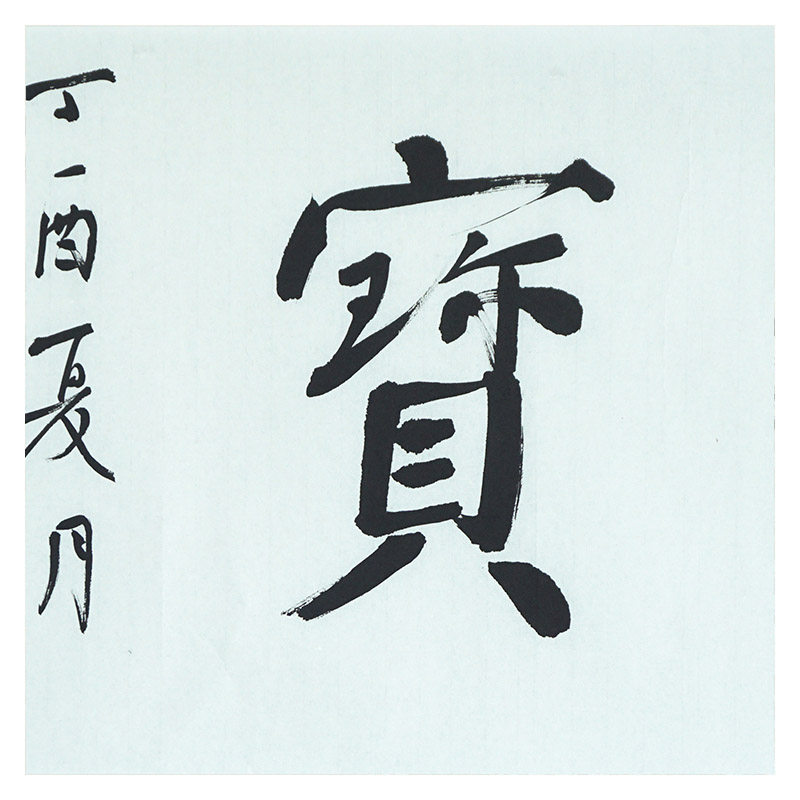 寳
丁酉夏月